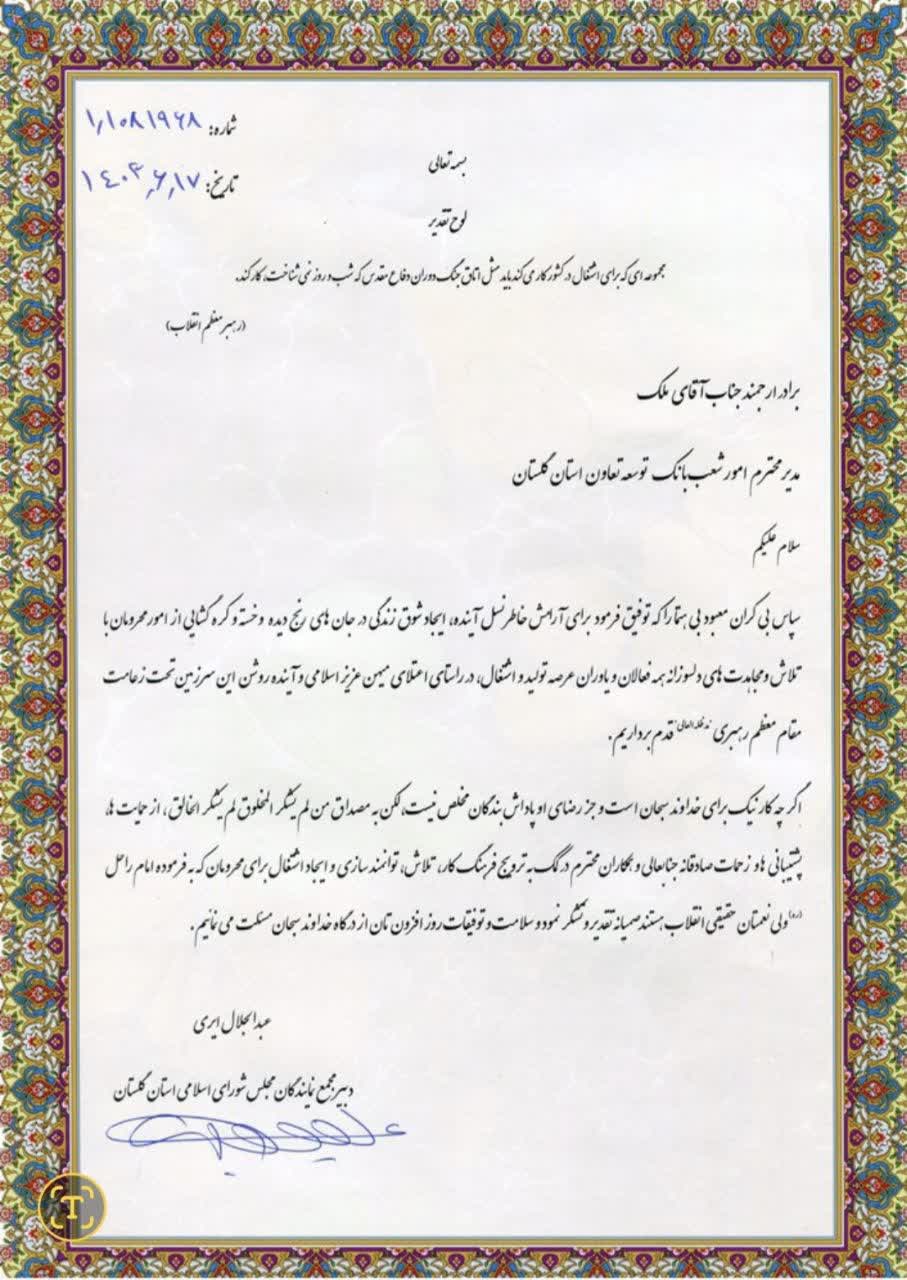 شماره: ۱٫۱۰۸۱۹۶۸
بسمه تعالی
تاریخ: ۱۴۰۳٫۶٫۱۷
لوح تقدیر
مجموعه ای که برای اشتغال در کشور کار می کند باید مثل اتاق جنگ دوران دفاع مقدس که شب و روز نمی شناخت، کار کند.
(رهبر معظم انقلاب)
برادر ارجمند جناب آقای ملک
مدیر محترم امور شعب بانک توسعه تعاون استان گلستان
سلام علیکم
سپاس بی کران معبود بی همتا را که توفیق فرمود برای آرامش خاطر نسل آینده، ایجاد شوق زندگی در جان های رنج دیده و خسته و گره گشایی از امور محرومان با
تلاش و مجاهدت های دلسوزانه همه فعالان و یاوران عرصه تولید و اشتغال، در راستای اعتلای میهن عزیز اسلامی و آینده روشن این سرزمین تحت زعامت
مقام معظم رهبری "مدظله العالی" قدم برداریم.
اگر چه کار نیک برای خداوند سبحان است و جز رضای او پاداش بندگان مخلص نیست، لکن به مصداق من لم یشکر المخلوق لم یشکر الخالق، از حمایت ها،
پشتیبانی ها و زحمات صادقانه جنابعالی و همکاران محترم در کمک به ترویج فرهنگ کار، تلاش، توانمند سازی و ایجاد اشتغال برای محرومان که به فرموده امام راحل
(ره) ولی نعمتان حقیقی انقلاب هستند صمیمانه تقدیر و تشکر نموده و سلامت و توفیقات روز افزون تان از درگاه خداوند سبحان مسئلت می نمائیم.
عبدالجلال ایری
دبیر مجمع نمایندگان مجلس شورای اسلامی استان گلستان